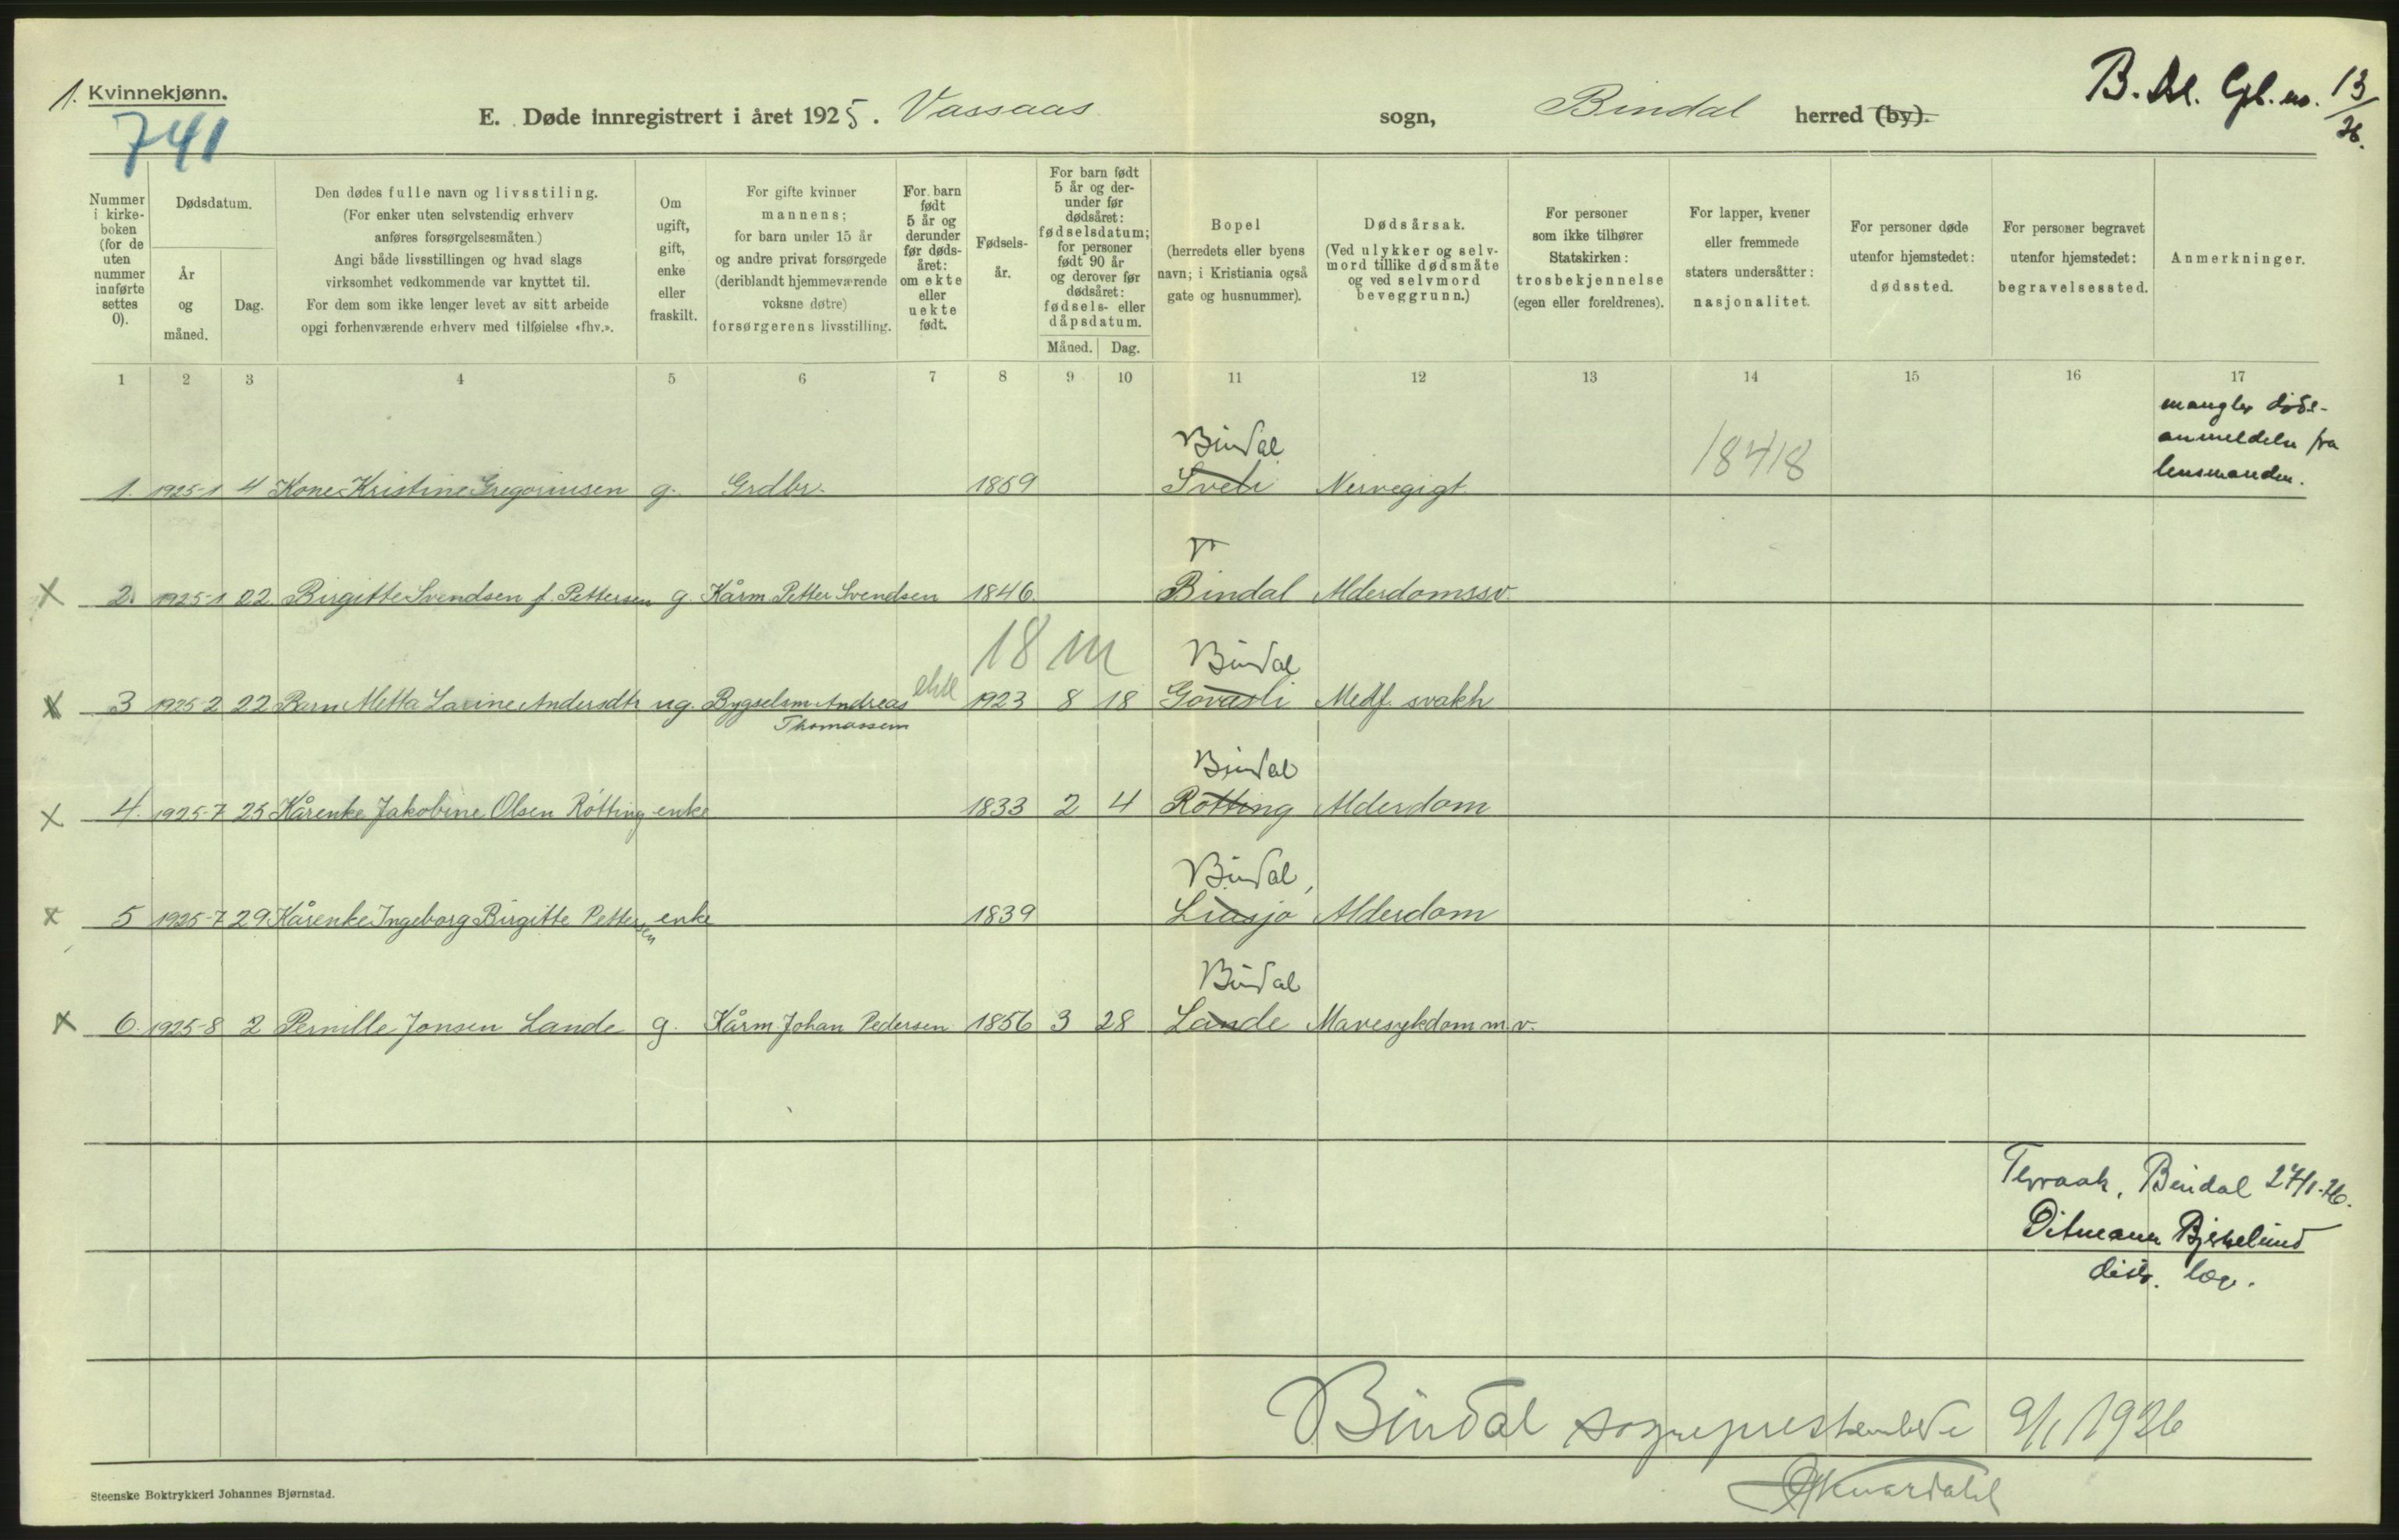 1. Kvinnekjønn.
741
E. Døde innregistrert i året 1925. Vassaas sogn, Bindal herred (by).
B. Dl. Gjl. no. 13/26.
Nummer i kirke-boken (for de uten nummer innførte settes 0).
Dødsdatum.
År og måned.
Dag.
Den dødes fulle navn og livsstiling.
(For enker uten selvstendig erhverv
anføres forsørgelsesmåten.)
Angi både livsstillingen og hvad slags
virksomhet vedkommende var knyttet til.
For dem som ikke lenger levet av sitt arbeide
opgi forhenværende erhverv med tilføielse «fhv.».
Om ugift, gift, enke eller fraskilt.
For gifte kvinner
mannens;
for barn under 15 år
og andre privat forsørgede
(deriblandt hjemmeværende
voksne døtre)
forsørgerens livsstilling.
For barn født 5 år og derunder før døds-året: om ekte eller uekte født.
Fødsels-år.
For barn født 5 år og der-under før dødsåret: fødselsdatum; for personer født 90 år og derover før dødsåret: fødsels- eller dåpsdatum.
Måned. Dag.
Bopel
(herredets eller byens
navn; i Kristiania også
gate og husnummer).
Dødsårsak.
(Ved ulykker og selv-
mord tillike dødsmåte
og ved selvmord
beveggrunn.)
For personer
som ikke tilhører
Statskirken:
trosbekjennelse
(egen eller foreldrenes).
For lapper, kvener
eller fremmede
staters undersåtter:
nasjonalitet.
For personer døde
utenfor hjemstedet:
dødssted.
For personer begravet
utenfor hjemstedet:
begravelsessted.
Anmerkninger.
1 2 3 4 5 6 7 8 9 10 11 12 13 14 15 16 17
mangler døds-
anmeldelse fra
lensmanden.
Bindal
18418
1. 1925-1 4 Kone Kristine Gregoriusen g. Grdbr. 1859 Sveli Nervegigt.
X 2. 1925-1 22 Birgitte Svendsen f. Pettersen g. Kårm Petter Svendsen 1846. Bindal Alderdomssv.
18 m
Bindal
X 3 1925-2 22 Barn Metta Larine Andersdtr ug. Bygselsm Andreas ekte 1923 8 18 Govasli Medf. svakh
Thomassen
Bindal
X 4. 1925-7 25 Kårenke Jakobine Olsen Røtting enke 1833 2 4 Røtting Alderdom
Bindal
X 5 1925-7 29 Kårenke Ingeborg Birgitte Pettersen enke 1839 Liasjø Alderdom
Bindal
X 6. 1925-8 2 Pernille Jonsen Lande g. Kårm Johan Pedersen 1856 3 28 Lande Mavesykdom m.v.
Terraak, Bindal 27/1-26.
Ditmann Bjerkelund
distr. læge.
Bindal sogneprestembede 9/1 1926
Steenske Boktrykkeri Johannes Bjørnstad.